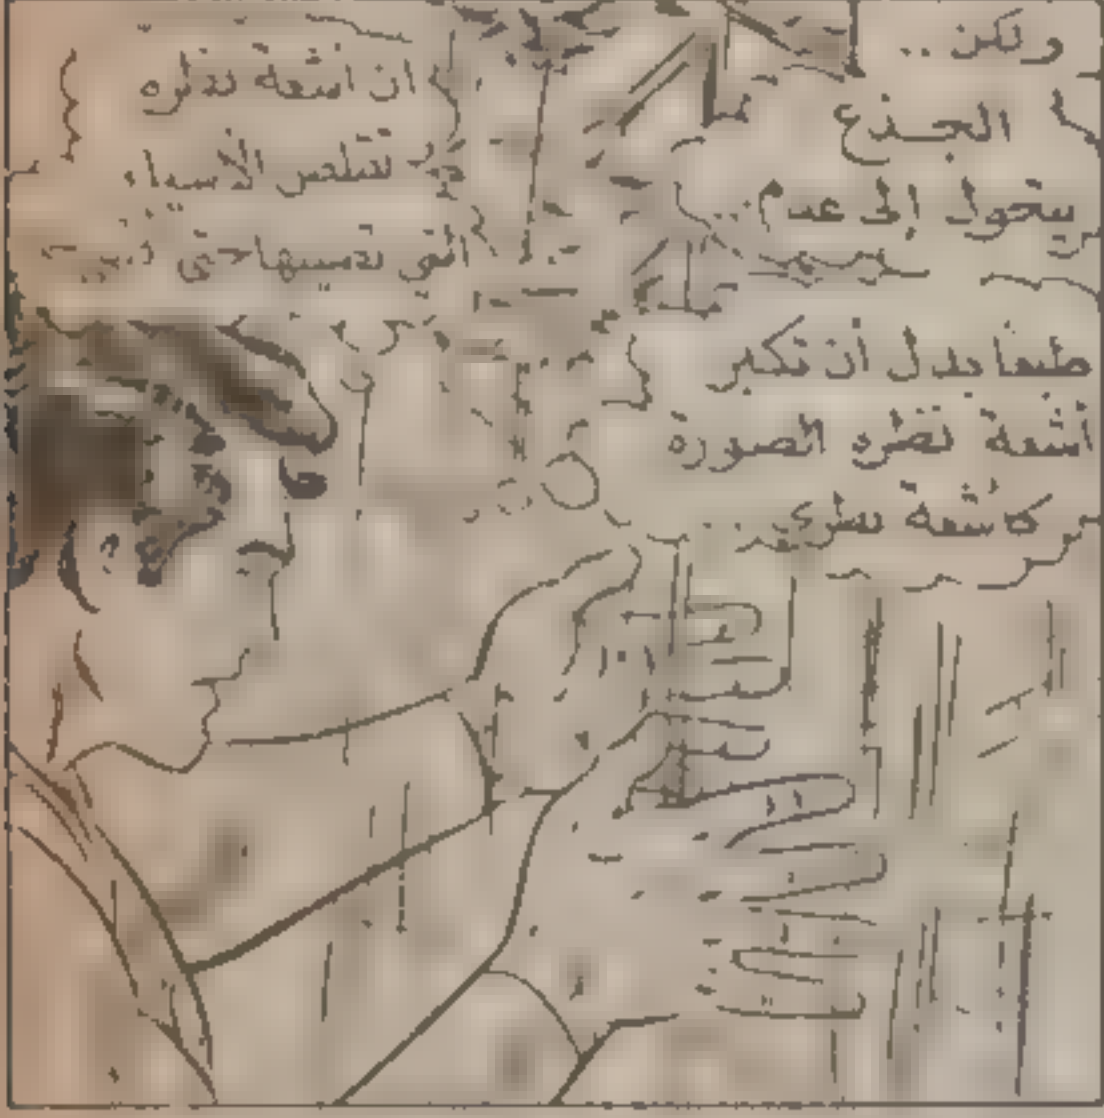 ولكن ..
الجذع
يتحول إلى عدم ..
طبعا بدل أن تكبر
أشعة نظره الصورة
كأشعة نظري ..
ان اشعة نظره
تقلص الأشياء
التي تصيبها حتى